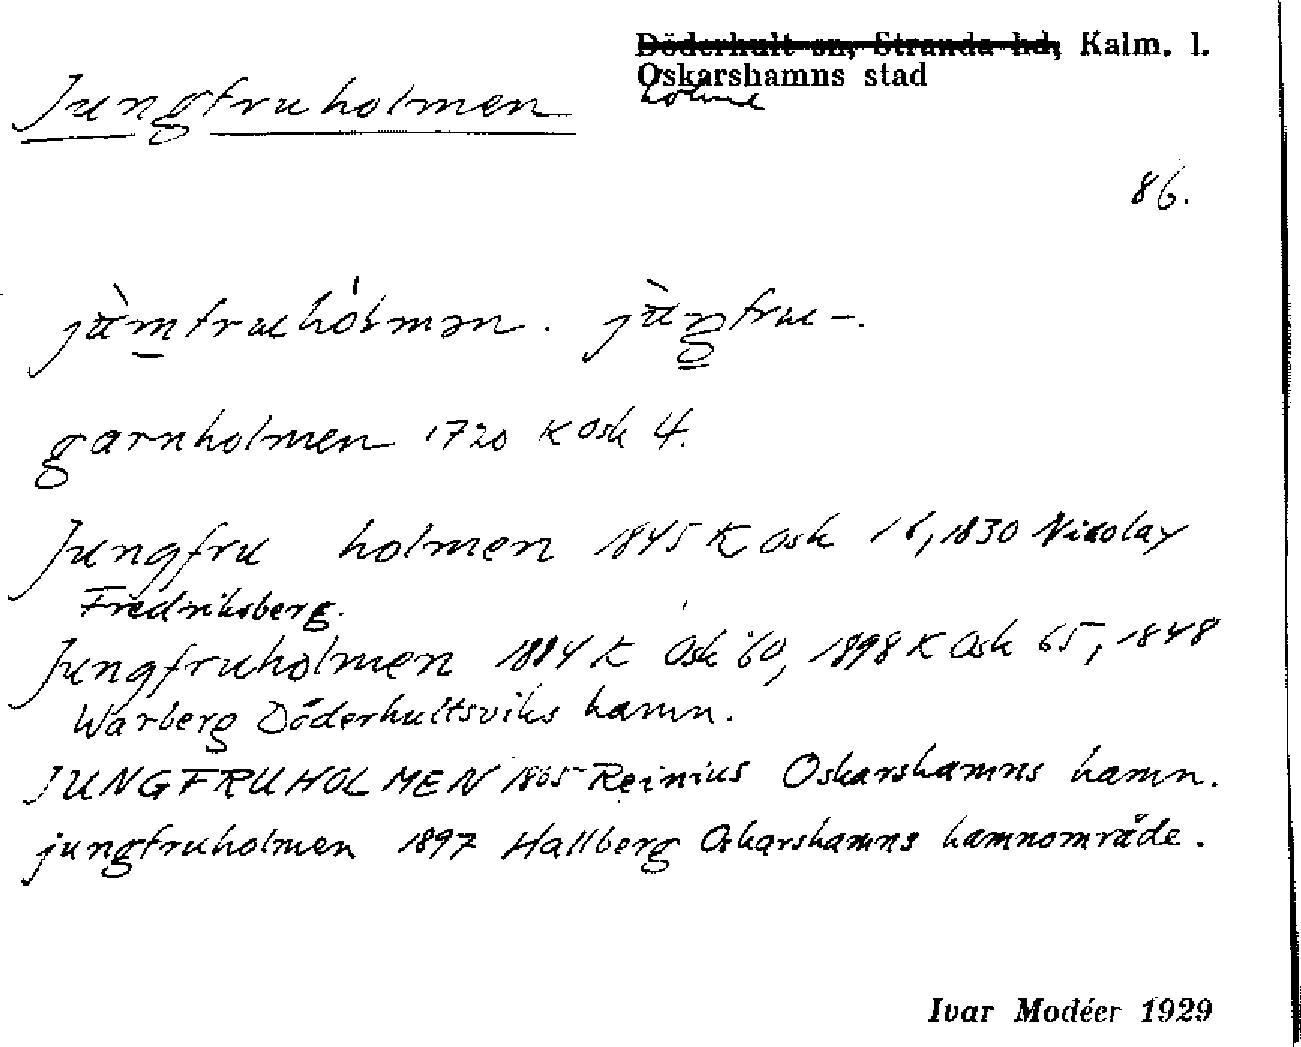 Döderhult sn, Stranda hd, Kalm. l.
Oskarshamns stad
holme
Jungfruholmen
86.
jùmfruhólmən. jùngfru-.
garnholmen 1720 K Osk 4.
Jungfru holmen 1845 K Osk 16, 1830 Nikolay
Fredriksberg.
Jungfruholmen 1884 K Osk 60, 1898 K Osk 65, 1848
Warberg Döderhultsviks hamn.
JUNGFRUHOLMEN 1865 Reinius Oskarshamns hamn.
jungfruholmen 1897 Hallberg Oskarshamns hamnområde.
Ivar Modéer 1929